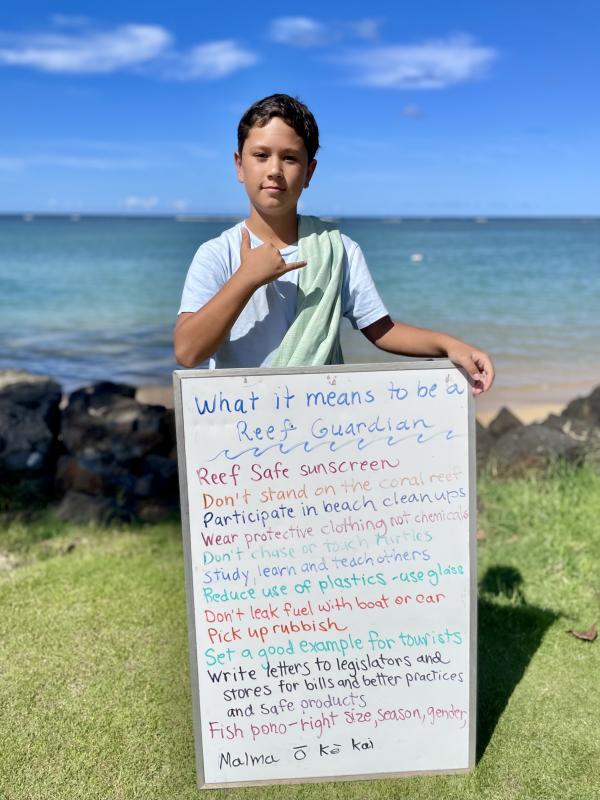 What it means to be a
Reef Guardian
Reef Safe sunscreen
Don't stand on the coral reef
Participate in beach cleanups
Wear protective clothing not chemicals
Don't chase or touch turtles
study, learn and teach others
Reduce use of plastics - use glass
Don't leak fuel with boat or car
Pick up rubbish
Set a good example for tourists
Write letters to legislators and
stores for bills and better practices
and safe products
Fish pono - right size, season, gender,
Malma ō kē kai